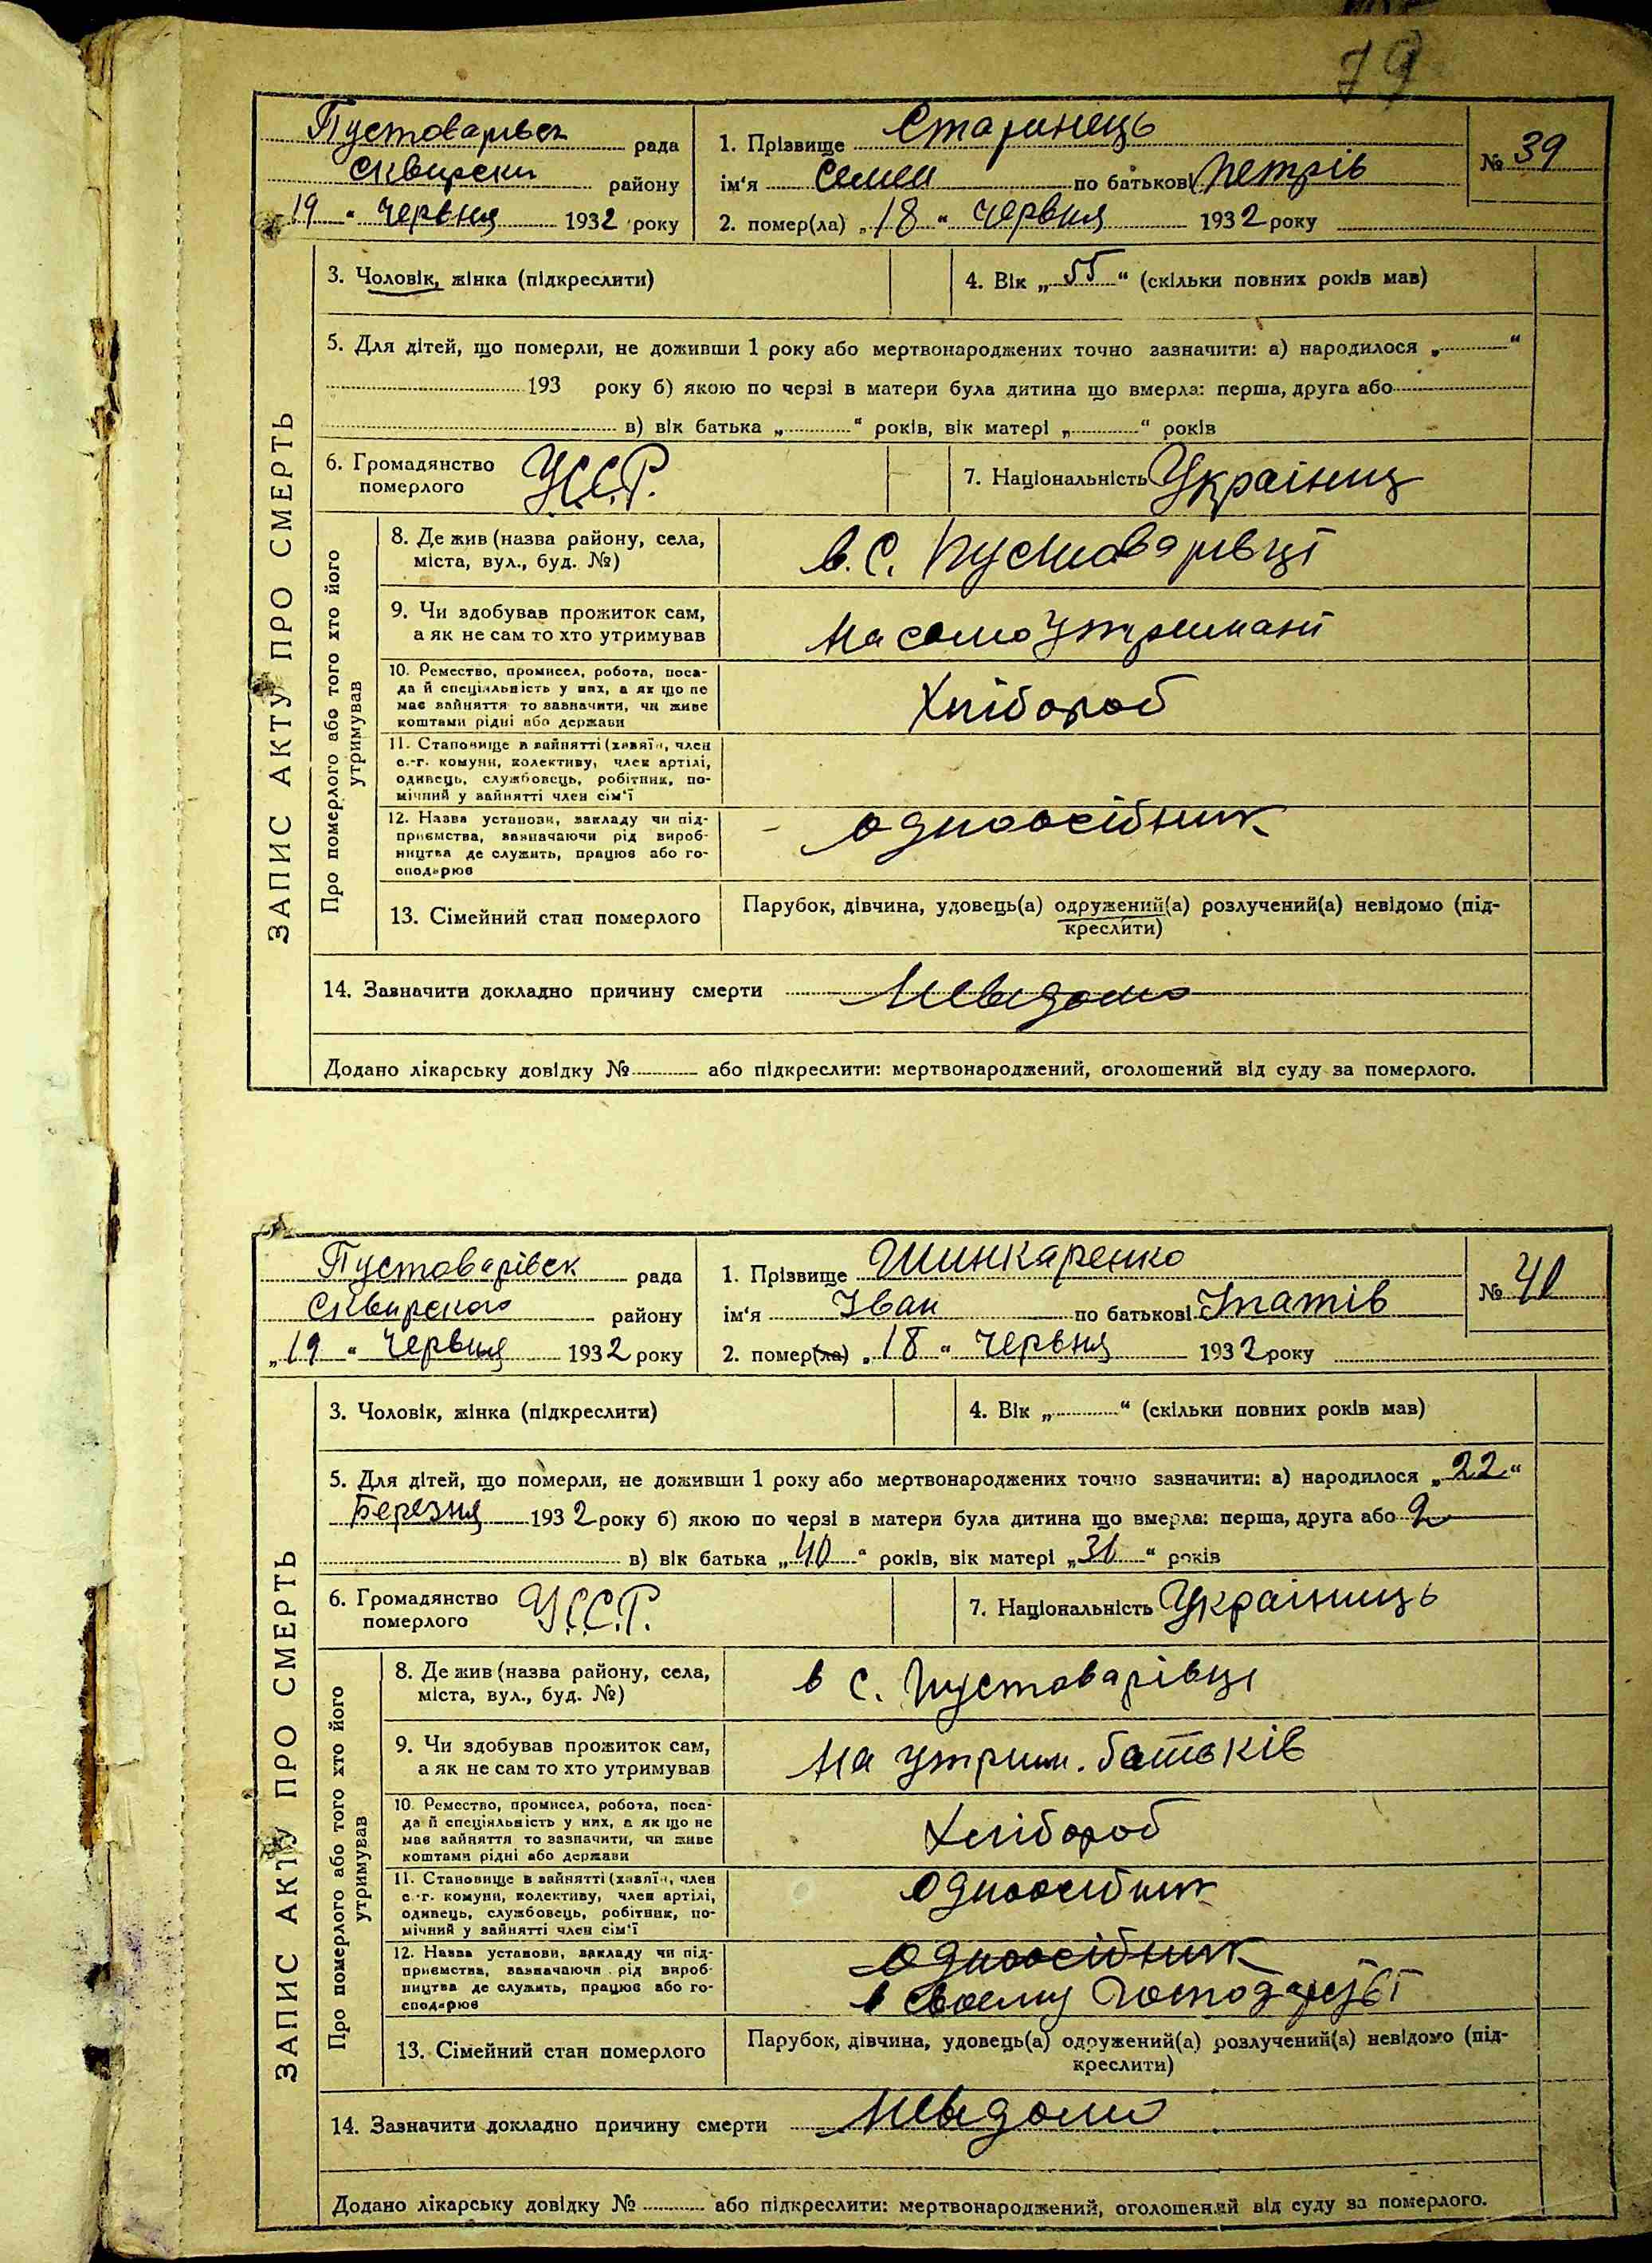 79
Пустоварівск рада
Сквирськ району
„19“ червня 1932 року
1. Прізвище Старинець
ім'я Семен по батькові Петрів
2. помер(ла) „18“ червня 1932 року
№ 39
ЗАПИС АКТУ ПРО СМЕРТЬ
3. Чоловік, жінка (підкреслити)
4. Вік „55“ (скільки повних років мав)
5. Для дітей, що померли, не доживши 1 року або мертвонароджених точно зазначити: а) народилося „ “
193 року б) якою по черзі в матери була дитина що вмерла: перша, друга або
в) вік батька „ “ років, вік матері „ “ років
6. Громадянство
померлого
У.С.С.Р.
7. Національність Українц
Про померлого або того хто його
утримував
8. Де жив (назва району, села,
міста, вул., буд. №)
в. с. Пустоварівці
9. Чи здобував прожиток сам,
а як не сам то хто утримував
На самоутриманї
10. Ремество, промисел, робота, поса-
да й спеціяльність у них, а як що не
має зайняття то зазначити, чи живе
коштами рідні або держави
Хлібороб
11. Становище в зайнятті (хазяїн, член
с.-г. комуни, колективу, член артілі,
одинець, службовець, робітник, по-
мічний у зайнятті член сім'ї
12. Назва установи, закладу чи під-
приємства, зазначаючи рід вироб-
ництва де служить, працює або го-
сподарює
одноосібник
13. Сімейний стан померлого
Парубок, дівчина, удовець(а) одружений(а) розлучений(а) невідомо (під-
креслити)
14. Зазначити докладно причину смерти Невідомо
Додано лікарську довідку № або підкреслити: мертвонароджений, оголошений від суду за померлого.
Пустоварівск рада
Сквирского району
„19“ червня 1932 року
1. Прізвище Шинкаренко
ім'я Іван по батькові Ігнатів
2. помер(ла) „18“ червня 1932 року
№ 40
ЗАПИС АКТУ ПРО СМЕРТЬ
3. Чоловік, жінка (підкреслити)
4. Вік „ “ (скільки повних років мав)
5. Для дітей, що померли, не доживши 1 року або мертвонароджених точно зазначити: а) народилося „22“
Березня 1932 року б) якою по черзі в матери була дитина що вмерла: перша, друга або 9
в) вік батька „40“ років, вік матері „36“ років
6. Громадянство
померлого
У.С.С.Р.
7. Національність Україниць
Про померлого або того хто його
утримував
8. Де жив (назва району, села,
міста, вул., буд. №)
в с. Пустоварівці
9. Чи здобував прожиток сам,
а як не сам то хто утримував
На утрим. батьків
10. Ремество, промисел, робота, поса-
да й спеціяльність у них, а як що не
має зайняття то зазначити, чи живе
коштами рідні або держави
Хлібороб
11. Становище в зайнятті (хазяїн, член
с.-г. комуни, колективу, член артілі,
одинець, службовець, робітник, по-
мічний у зайнятті член сім'ї
Одноосібник
12. Назва установи, закладу чи під-
приємства, зазначаючи рід вироб-
ництва де служить, працює або го-
сподарює
Одноосібник
в своєму господарстві
13. Сімейний стан померлого
Парубок, дівчина, удовець(а) одружений(а) розлучений(а) невідомо (під-
креслити)
14. Зазначити докладно причину смерти Невідомо
Додано лікарську довідку № або підкреслити: мертвонароджений, оголошений від суду за померлого.